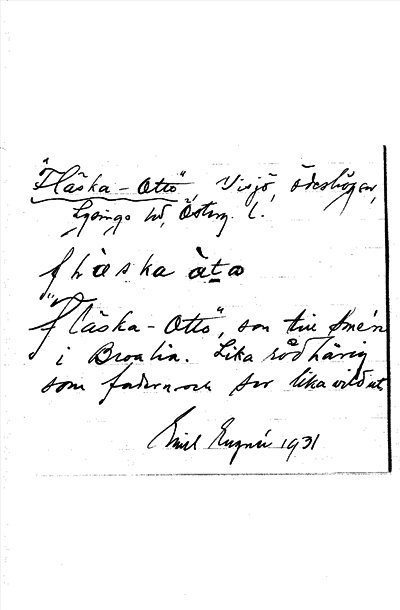 "Fläska-Otto", Visjö, Ödeshögen,
Lysings hd, Österg. l.
flæska àta
"Fläska-Otto", son till Smén
i Broalia. Lika rödhårig
som fadern och ser lika vild ut.
Emil 1931